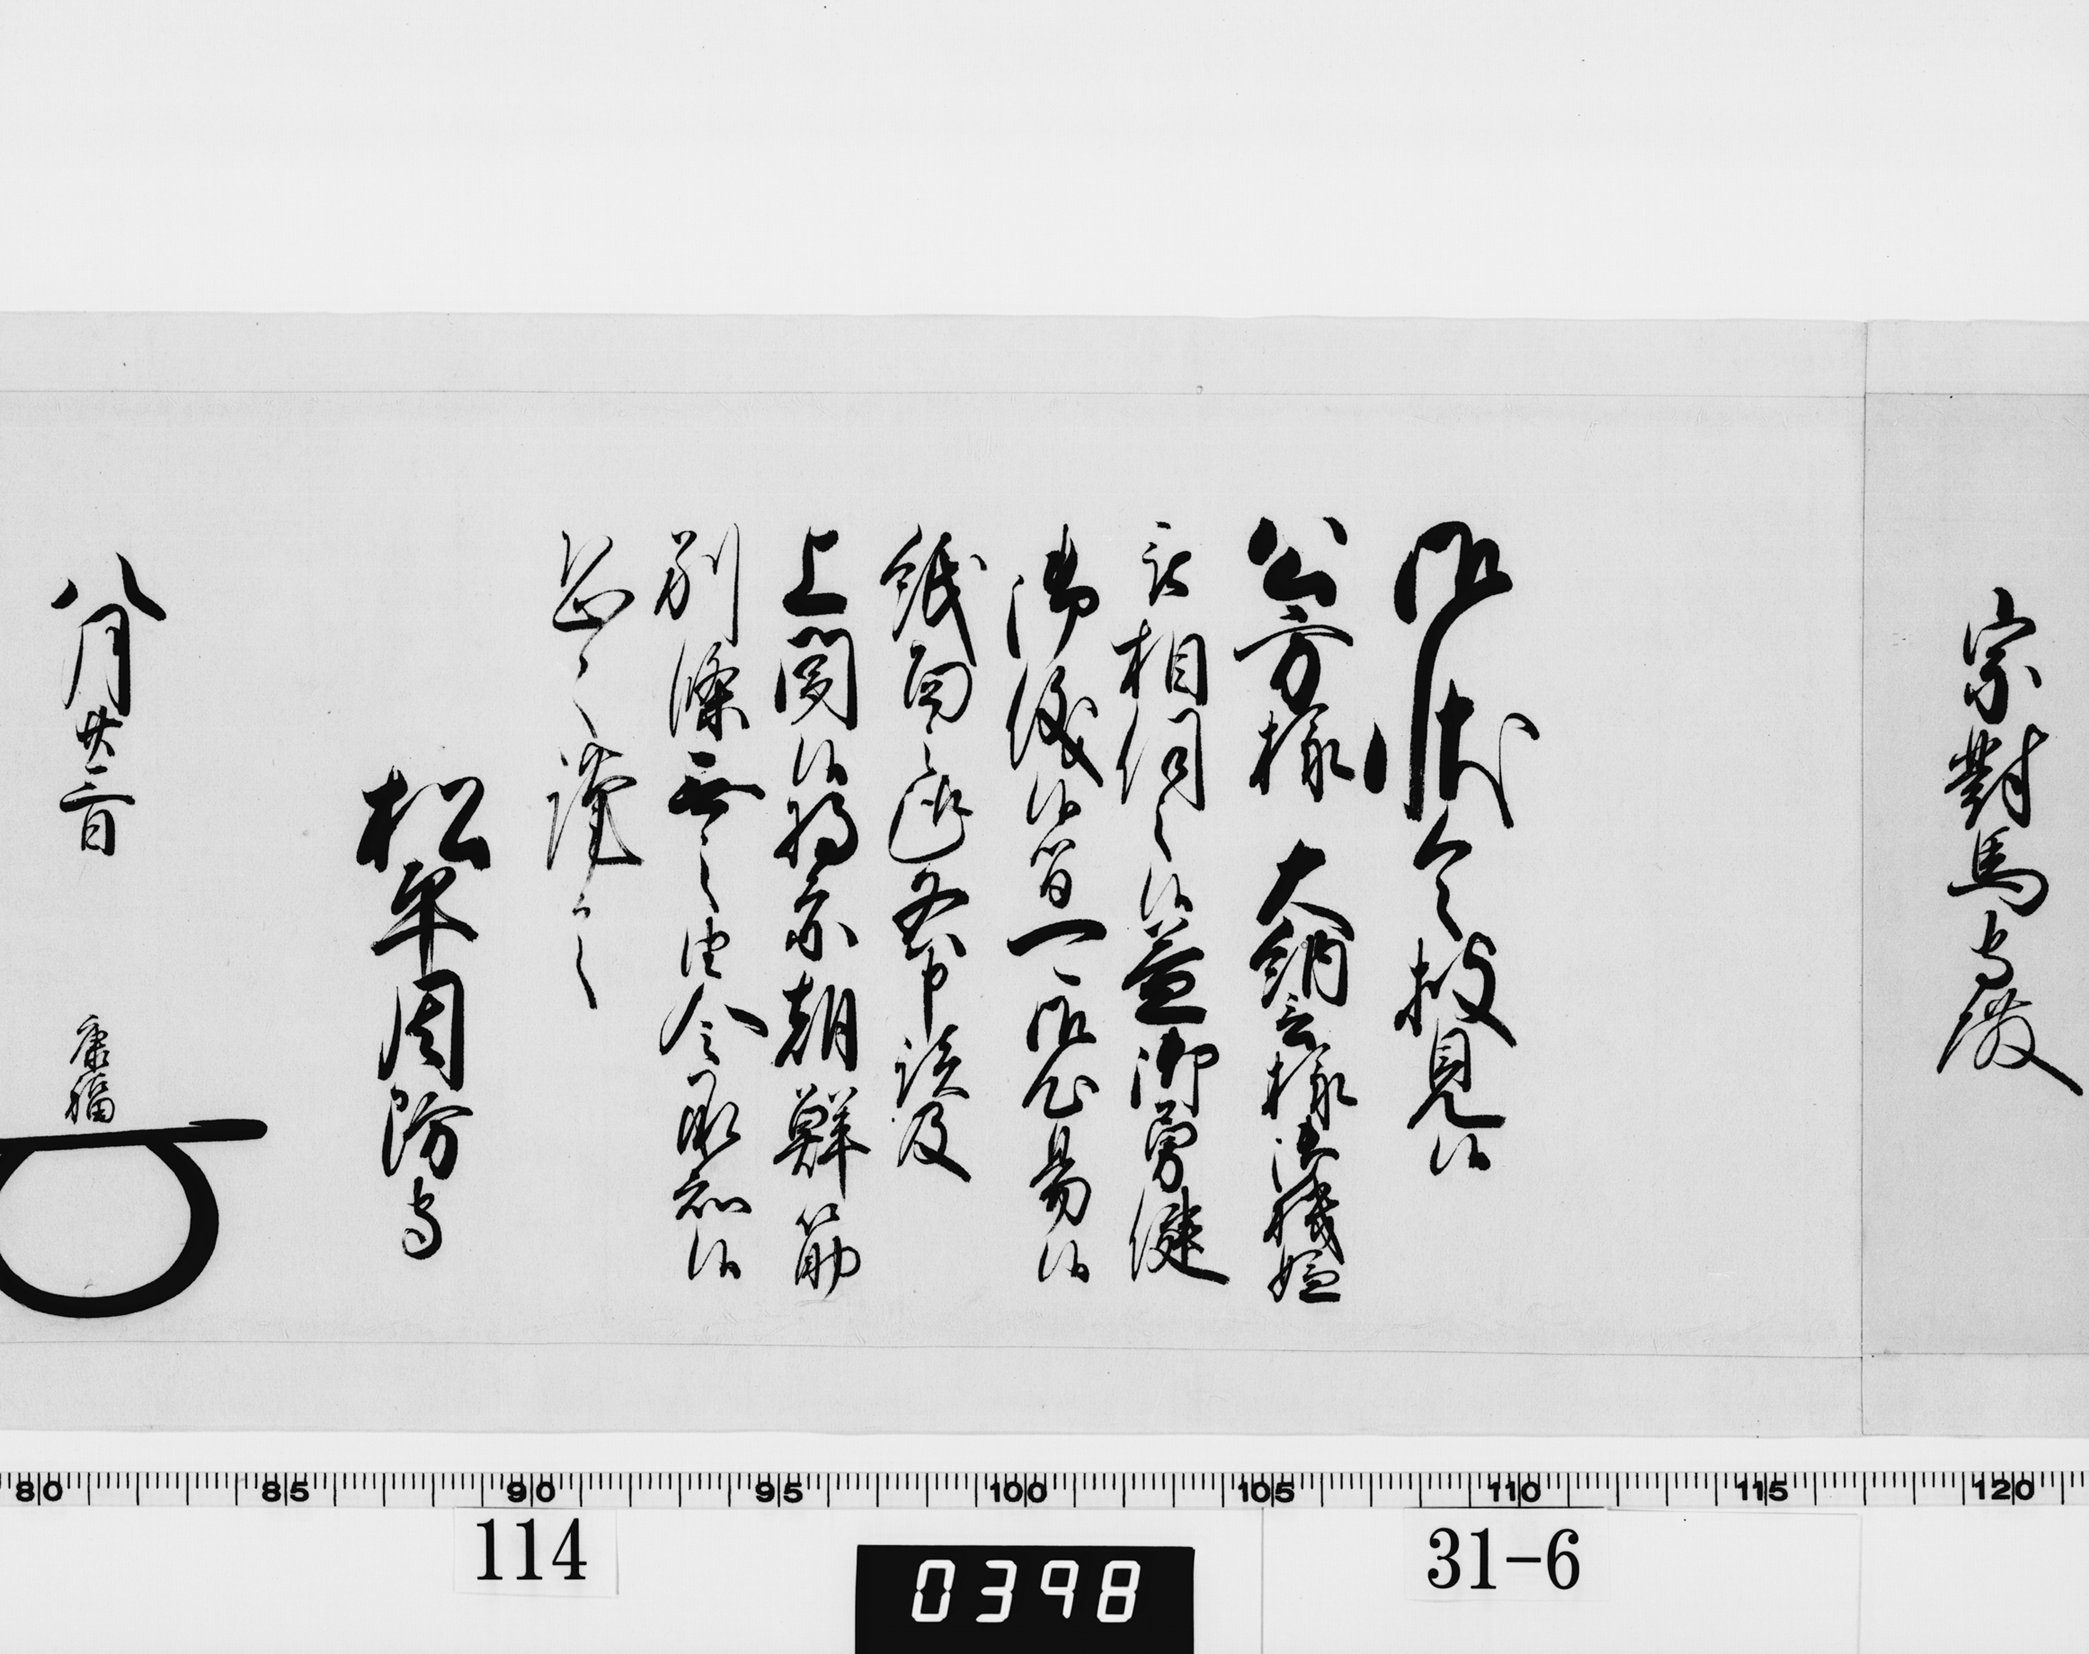 宗對馬守殿
御状令披見候
公方様 大納言様御機嫌
被相伺之候益御勇健
御儀候間可御心易候
紙面之趣各申談及
上聞候将亦朝鮮筋
別条無之由令承知候
恐々謹言
松平周防守
八月廿三日
康福
80 85 90 95 100 105 110 115 120
114
0398
31-6